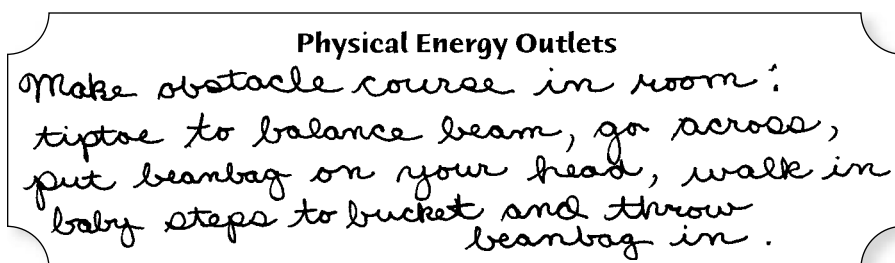 Physical Energy Outlets
Make obstacle course in room:
tiptoe to balance beam, go across,
put beanbag on your head, walk in
baby steps to bucket and throw
beanbag in.